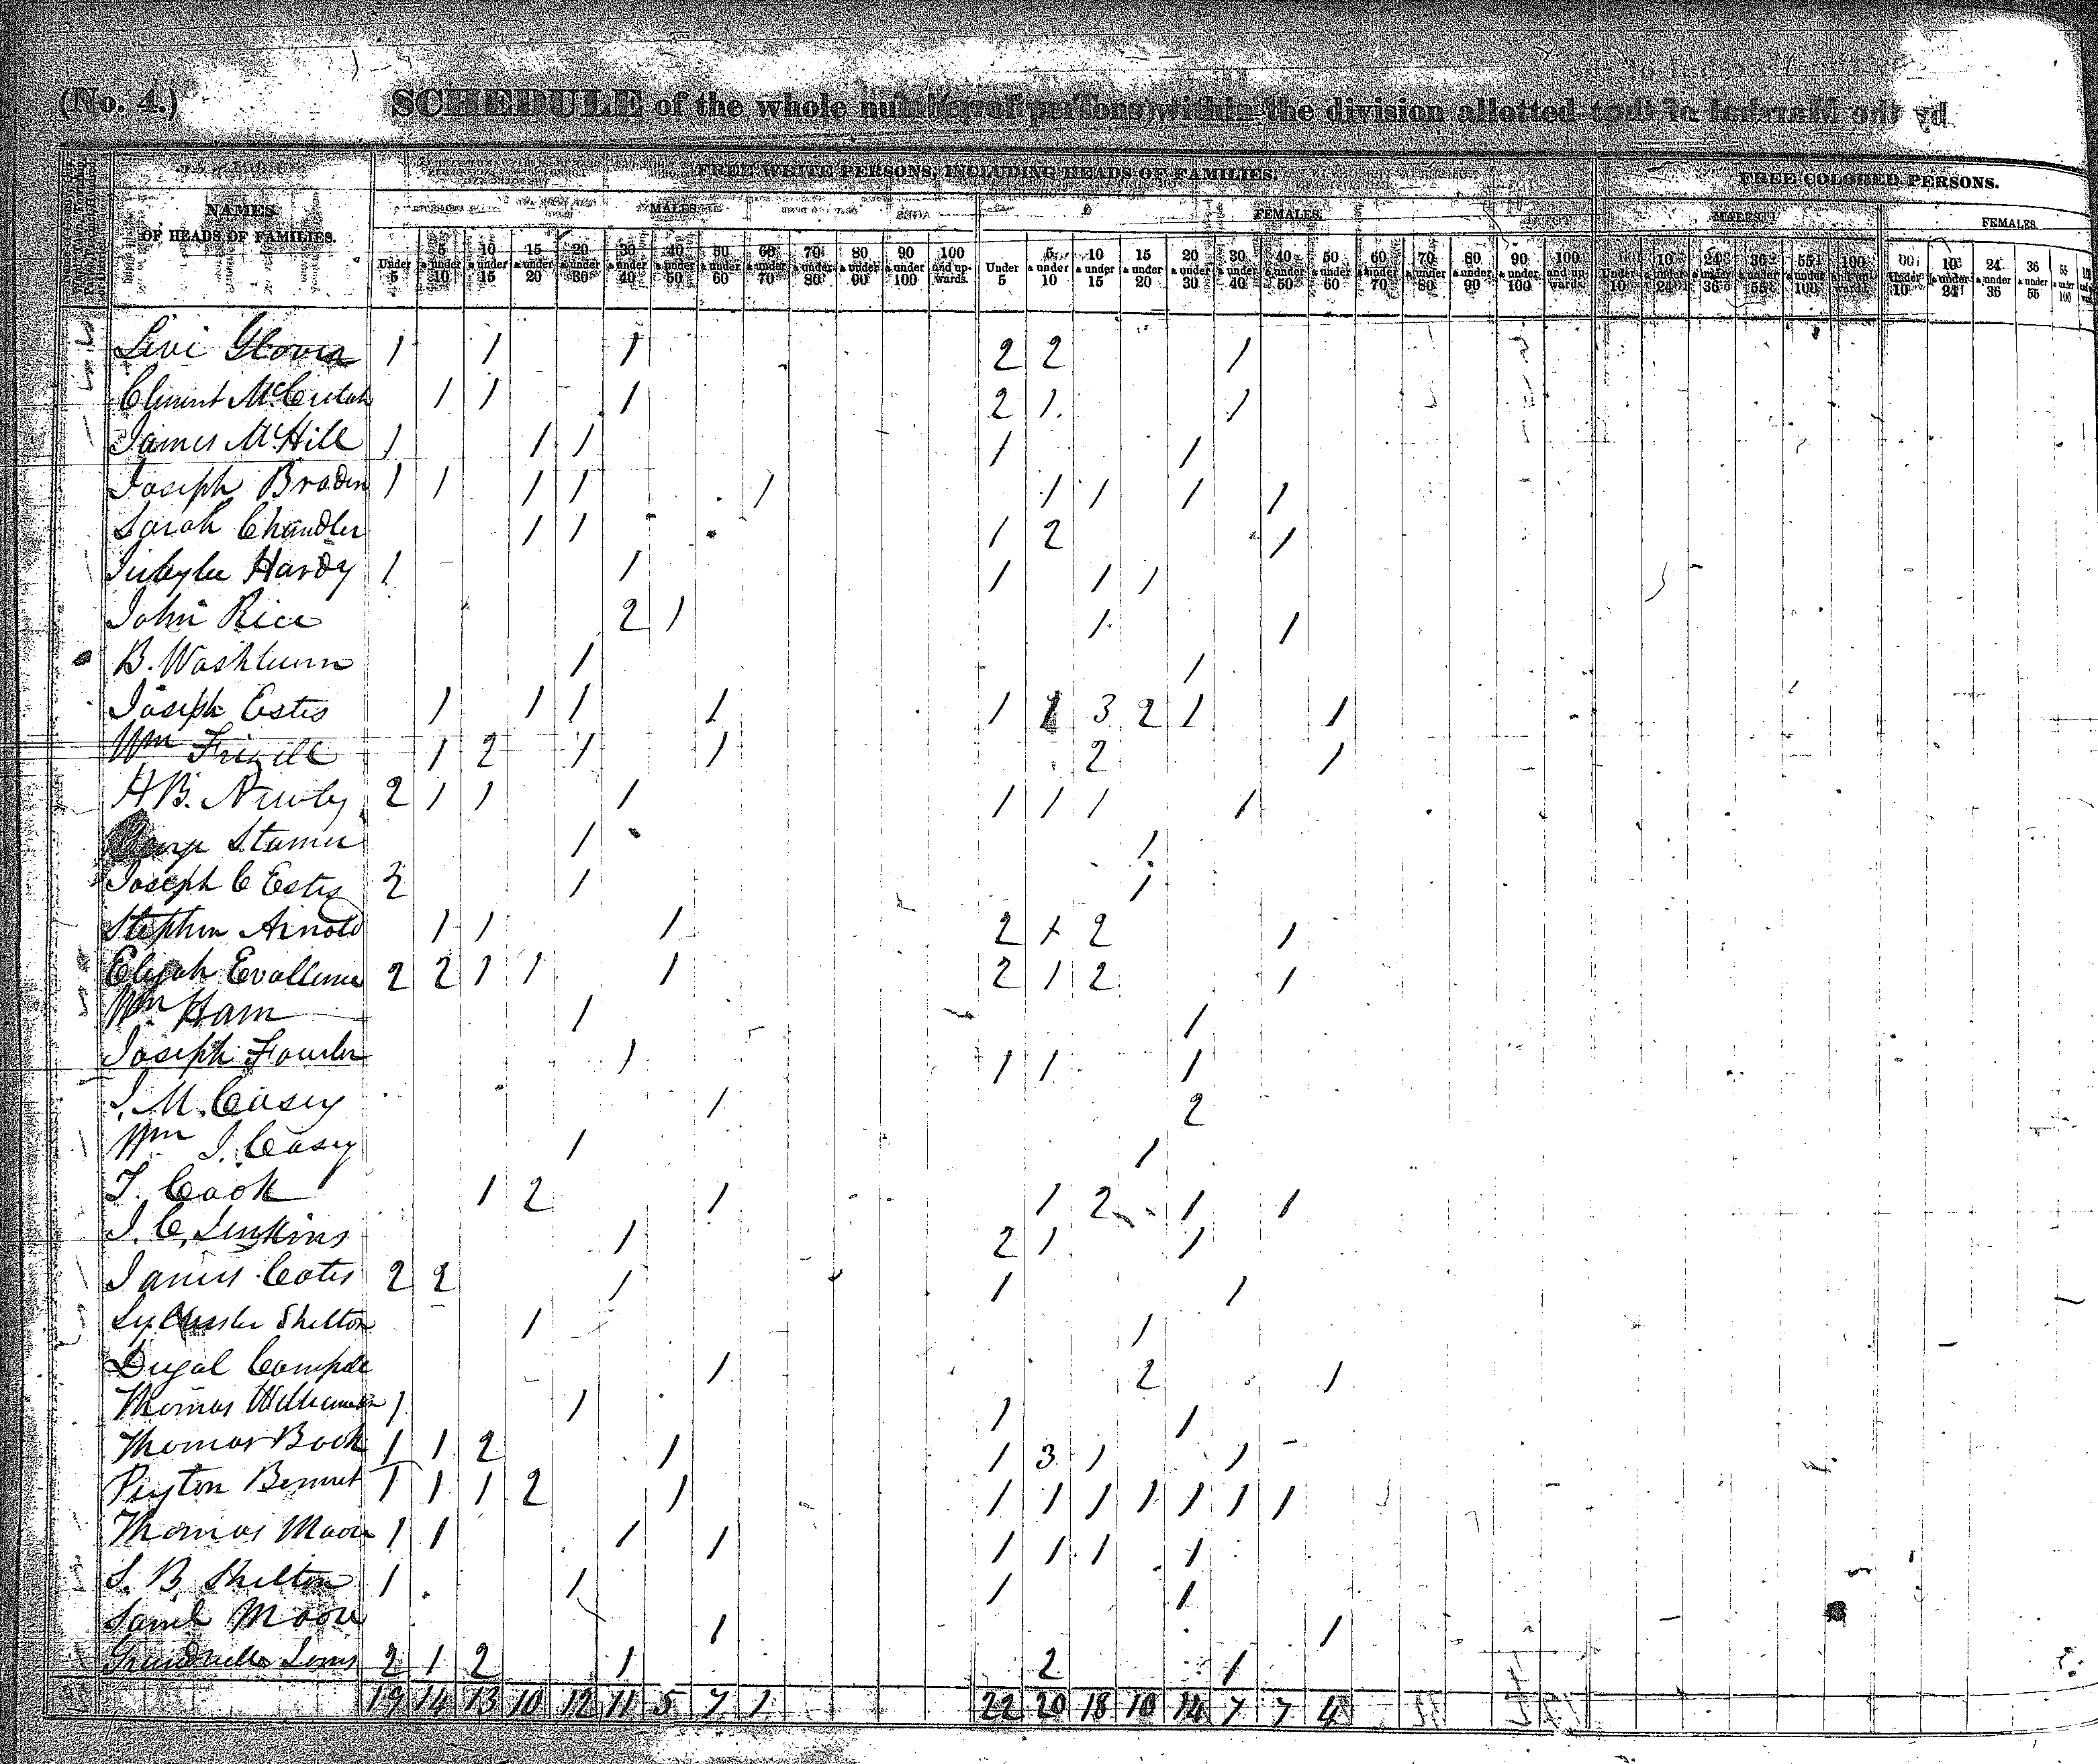 (No. 4.) SCHEDULE of the whole number of persons within the division allotted
FREE WHITE PERSONS, INCLUDING HEADS OF FAMILIES. FREE COLORED PERSONS.
NAMES
OF HEADS OF FAMILIES.
MALES FEMALES MALES FEMALES
Under 5 5 & under 10 10 & under 15 15 & under 20 20 & under 30 30 & under 40 40 & under 50 50 & under 60 60 & under 70 70 & under 80 80 & under 90 90 & under 100 100 and upwards. Under 5 5 & under 10 10 & under 15 15 & under 20 20 & under 30 30 & under 40 40 & under 50 50 & under 60 60 & under 70 70 & under 80 80 & under 90 90 & under 100 100 and upwards. Under 10 10 & under 24 24 & under 36 36 & under 55 55 & under 100 100 and upwards. Under 10 10 & under 24 24 & under 36 36 & under 55 55 & under 100
Levi Glover 1 1 1 2 2 1
Clement 1 1 1 2 1 1
James McHill 1 1 1 1 1
Joseph Braden 1 1 1 1 1 1 1 1 1
Sarah Chandler 1 1 1 2 1
Hardy 1 1 1 1 1
John Rice 2 1 1 1
B. Washburn 1 1
Joseph Estes 1 1 1 1 1 1 3 2 1 1
Wm Frizell 1 2 1 1 2 1
H B. Newby 2 1 1 1 1 1 1 1
George 1 1
Joseph C Estes 1 1
Stephen Arnold 1 1 1 2 1 2 1
Elijah 2 2 1 1 1 2 1 2 1
Wm Ham 1 1
Joseph Fowler 1 1 1 1
J. M. Casey 1 2
Wm J. Casey 1 1
T. Cook 1 2 1 1 2 1 1
J. C. Jenkins 1 2 1 1
James Cates 2 2 1 1 1
Shelton 1 1
Dugal 1 2 1
Thomas Williamson 1 1 1 1
Thomas 1 1 2 1 1 3 1 1
Peyton Bennet 1 1 1 2 1 1 1 1 1 1 1 1
Thomas Moore 1 1 1 1 1 1 1 1
S. B Shelton 1 1 1 1
Saml Moore 1 1
2 1 2 1 2 1
19 14 13 10 12 11 5 7 1 22 20 18 10 14 7 7 4